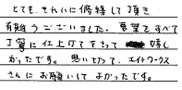 とても、きれいに修繕して頂き
有難うございました。要望をすべて
丁寧に仕上げて下さって 嬉し
かったです。思い切って、エイトワークス
さんにお願いして よかったです。